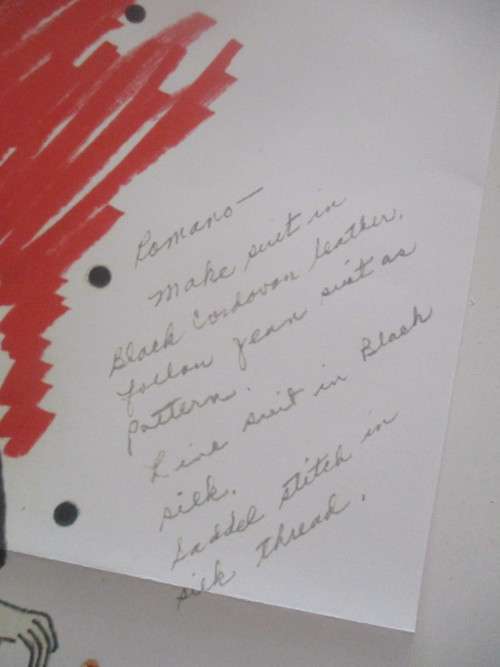 Romano—
Make suit in
Black Cordovan leather,
follow Jean suit as
pattern.
Line suit in Black
silk.
Saddel stitch in
silk thread.